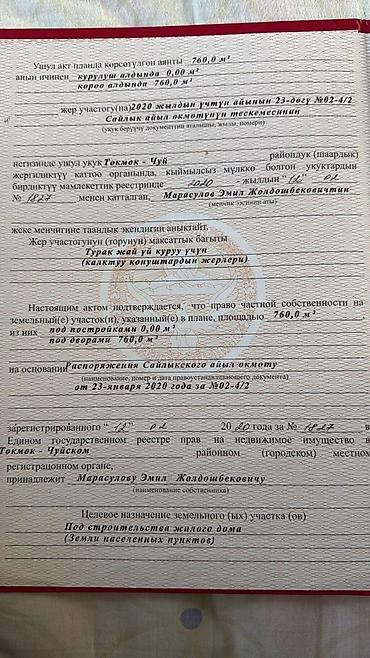 Ушул акт планда көрсөтүлгөн аянты 760,0 м²
анын ичинен курулуш алдында 0,00 м²
короо алдында 760,0 м²
жер участогу(на) 2020 жылдын үчтүн айынын 23-дөгү №02-4/2
Сайлык айыл өкмөтүнүн тескемесинин
(укук берүүчү документтин аталышы, жылы, номери)
негизинде ушул укук Токмок - Чуй райондук (шаардык)
жергиликтүү каттоо органында, кыймылсыз мүлккө болгон укуктардын
бирдиктүү мамлекеттик реестринде 2020 - жылдын "12" 02
№ 1827 менен катталган, Марасулов Эмил Жолдошбековичтин
(менчик ээсинин аты)
жеке менчигине таандык экендигин аныктайт.
Жер участогунун (торунун) максаттык багыты
Турак жай үй куруу үчүн
(калктуу конуштардын жерлери)
Настоящим актом подтверждается, что право частной собственности на
земельный(е) участок(и), указанный(е) в плане, площадью 760,0 м²
из них под постройками 0,00 м²
под дворами 760,0 м²
на основании Распоряжения Сайлыкского айыл окмоту
(наименование, номер и дата правоустанавливающего документа)
от 23-января 2020 года за №02-4/2
зарегистрированного "12" 02 2020 года за № 1827 в
Едином государственном реестре прав на недвижимое имущество в
Токмок - Чуйском районном (городском) местном
регистрационном органе,
принадлежит Марасулову Эмил Жолдошбековичу
(наименование собственника)
Целевое назначение земельного (ых) участка (ов)
Под строительства жилого дома
(Земли населенных пунктов)